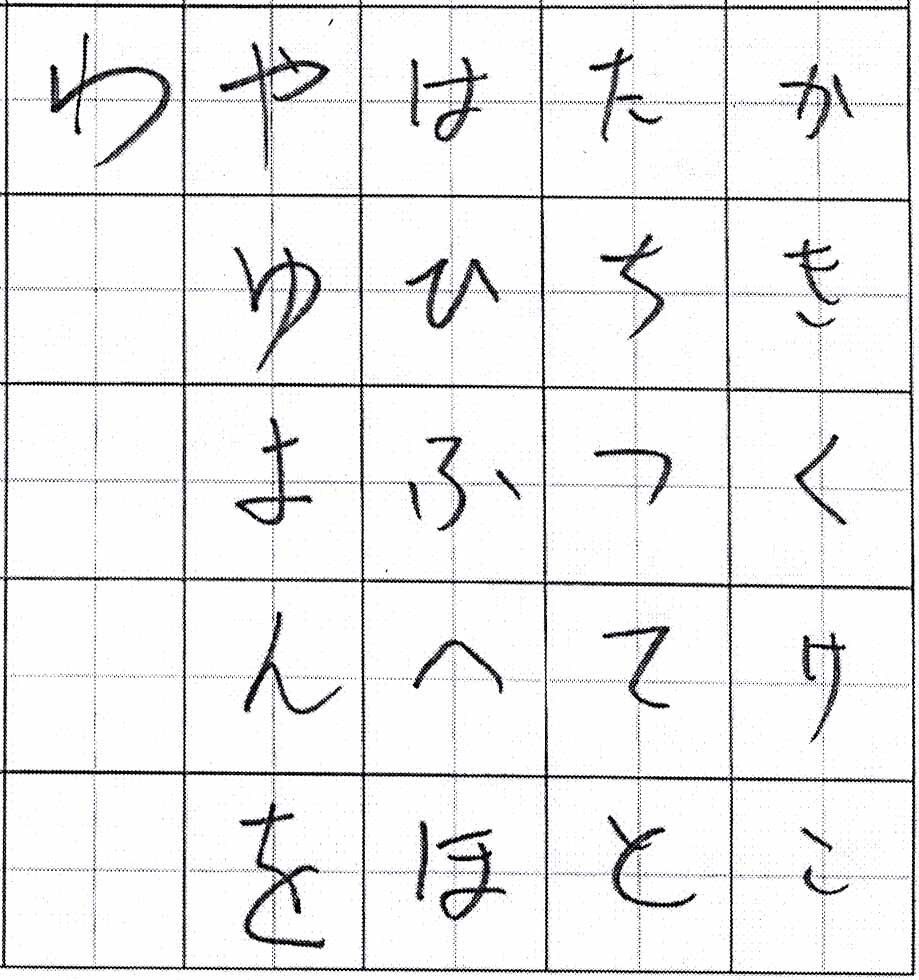 かきくけこ
たちつてと
はひふへほ
やゆよんを
わ